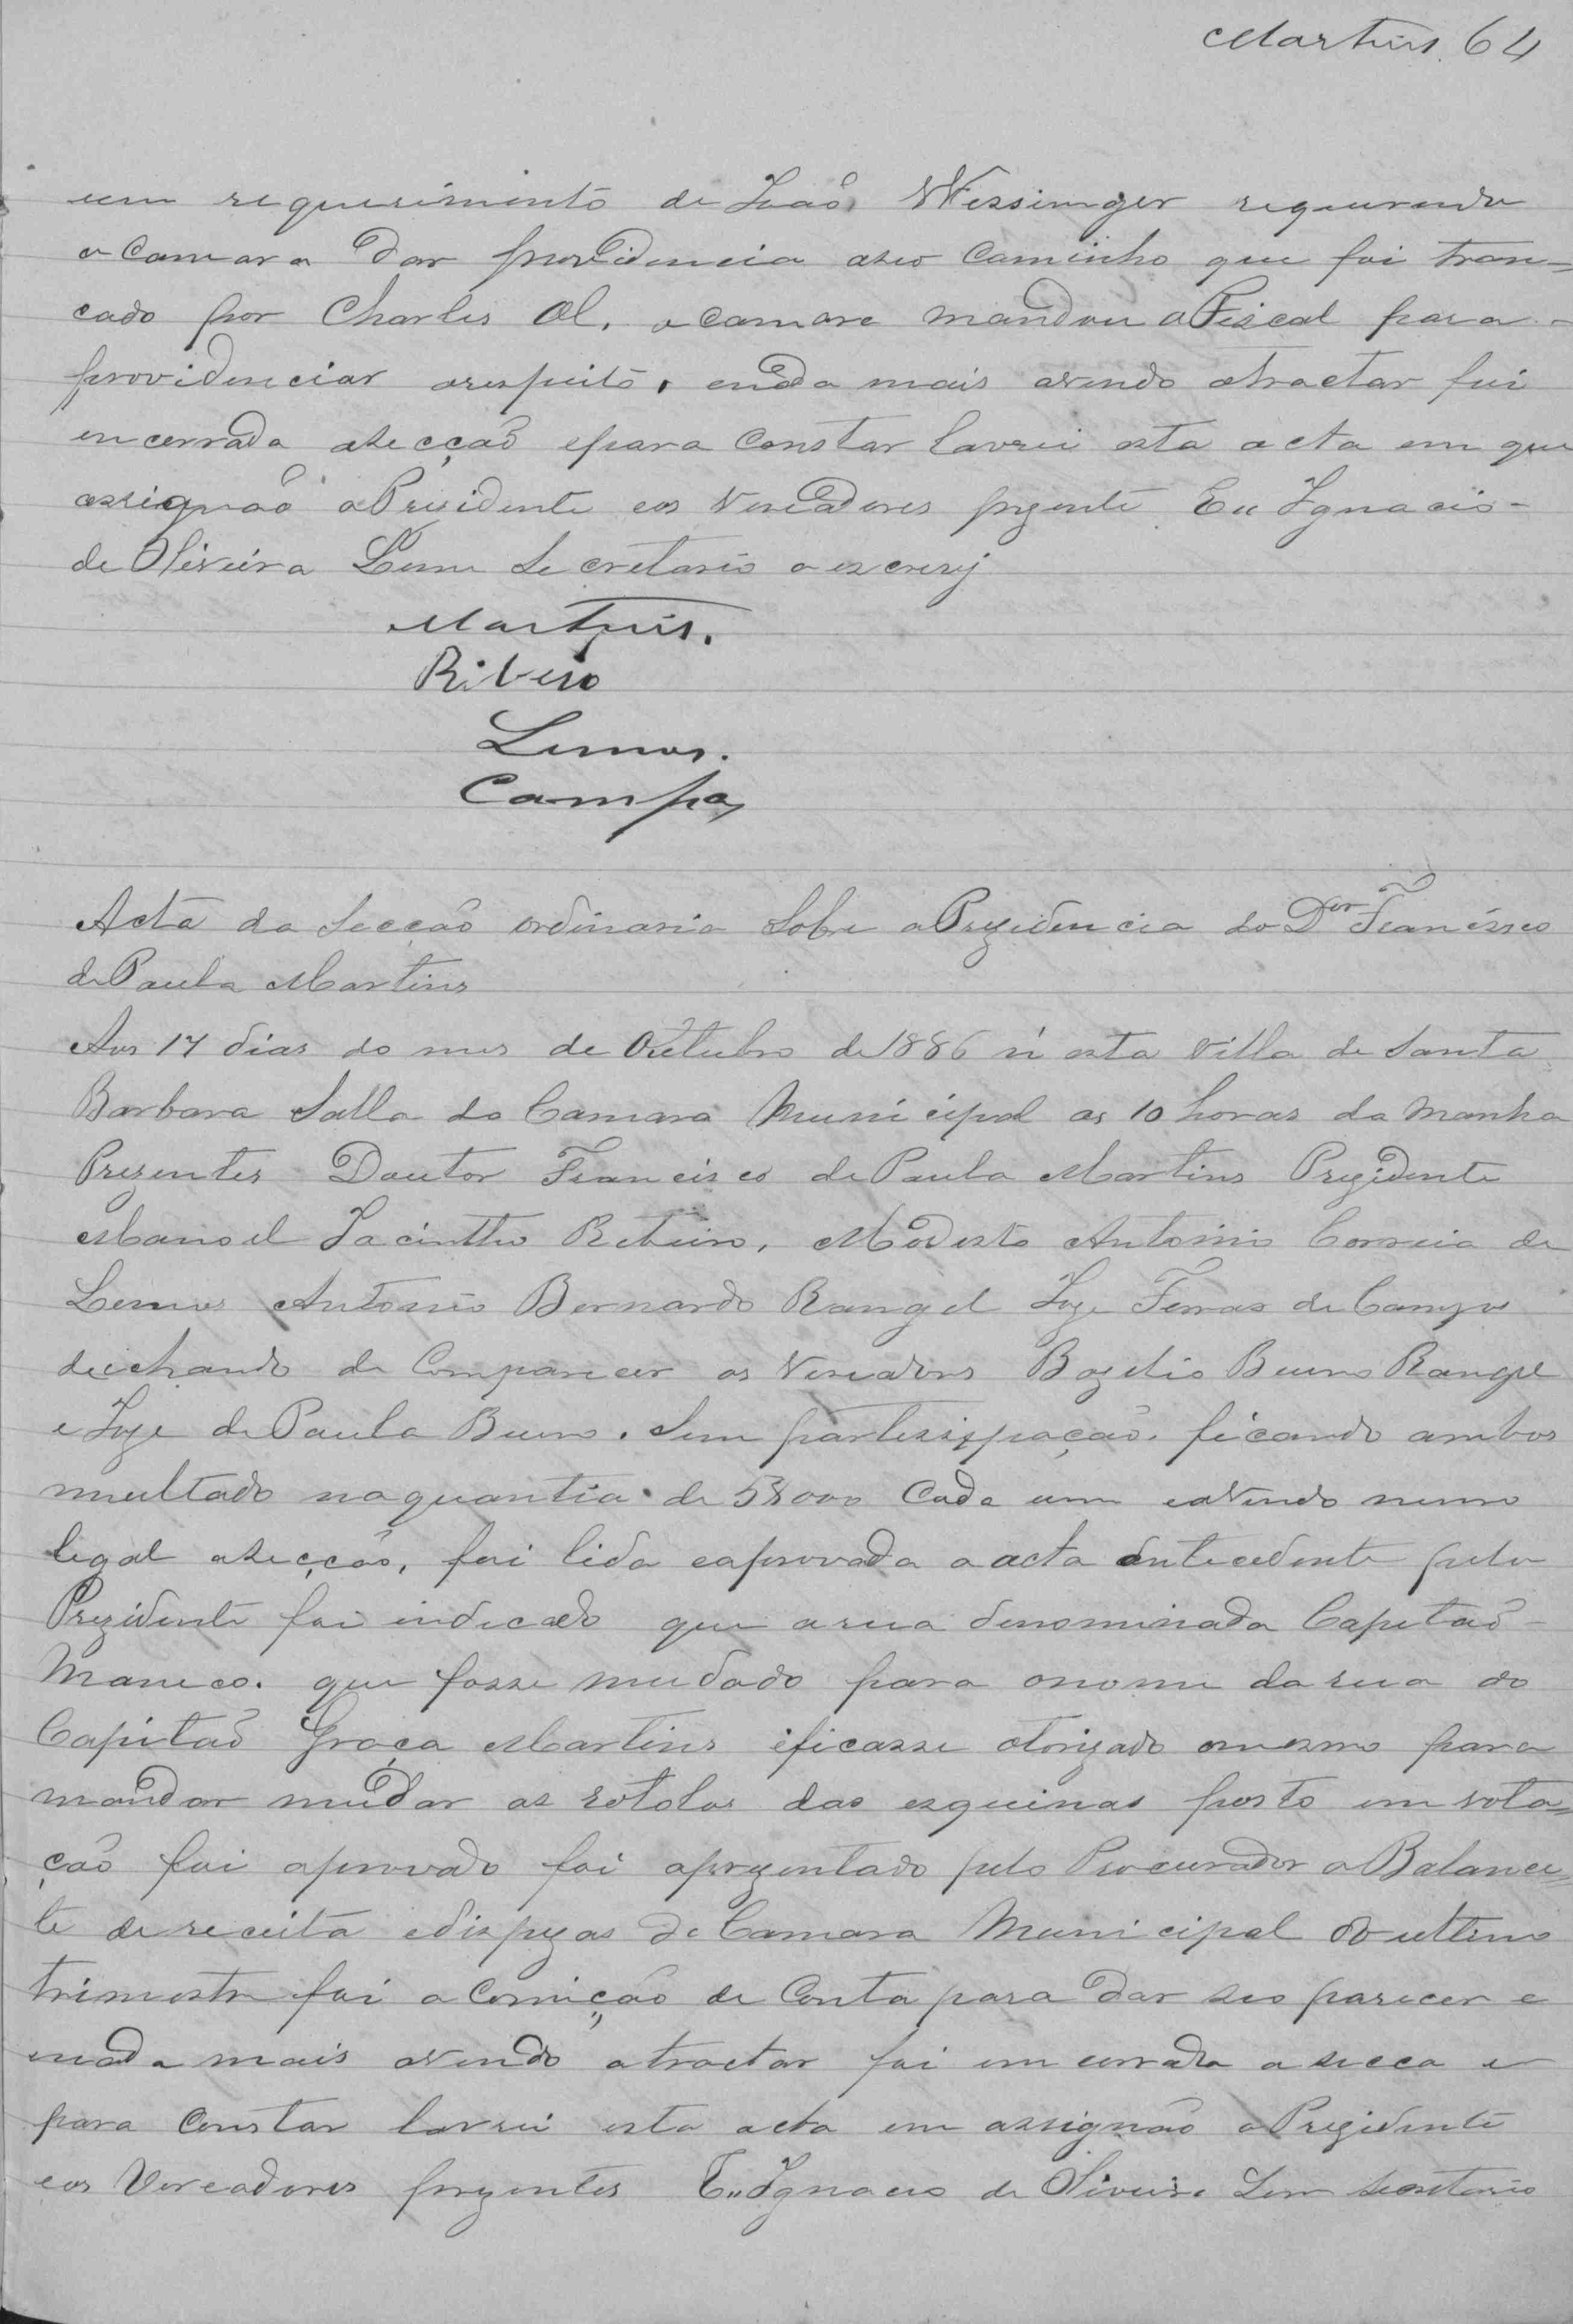 Martins. 64
um requerimento de João Wessinger requerendo
a Camara dar providencia aseo Caminho que foi tran=
cado por Charles Ol. a Camara mandou o Fiscal para
providenciar arespeito, enada mais avendo atractar fui
encerrada asecção epara Constar lavrei esta acta em que
assignaõ o Presidente eos Vereadores prezente Eu Ignacio
de Oliveira Leme Secretario o escrevj
Martins.
Ribeiro
Lemos.
Campos
Acta da Secção ordinaria Sobre a Prezidencia do Dor Francisco
de Paula Martins
Aos 17 dias do mes de Outubro de 1886 n'esta Villa de Santa
Barbara Salla da Camara Municipal as 10 horas da manha
Prezentes Doutor Francisco de Paula Martins Prezidente
Manoel Jacintho Ribeiro, Modesto Antonio Correia de
Lemos Antonio Bernardo Rangel Joze Ferras de Campos
deichando de Comparecer os Vereadores Bazilio Bueno Rangel
e Joze de Paula Bueno. Sem partessipação. ficando ambos
multado naquantia de 5$000 Cada um eavendo numro
legal asecção, foi lida eaprovada a acta antecedente pelo
Prezidente foi indicado que arua denominada Capitaõ
Maneco. que fosse mudado para onome darua do
Capitaõ Graça Martins eficasse otorizado omesmo para
mandar mudar os rotolos das esquinas posto em vota=
ção foi aprovado foi aprezentado pelo Procurador o Balance=
te dereceita edispezas da Camara Municipal do ultimo
trimestre foi a Comição de Conta para dar seo parecer e
nada mais avendo atractar foi emcerrada a secca e
para Constar lavrei esta acta em assignão o Prezidente
eos Vereadores prezentes Eu Ignacio de Oliveira Lem Secretario